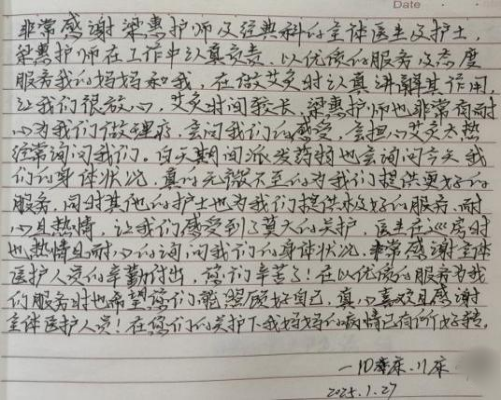 Date
非常感谢梁惠护师及经典科的全体医生及护士,
梁惠护师在工作中认真负责,以优质的服务及态度
服务我的妈妈和我,在做艾灸时认真讲解其作用,
让我们很放心,艾灸时间较长,梁惠护师也非常有耐
心为我们做理疗,会问我们的感受,会担心艾灸太热
经常询问我们。白天期间派发药物也会询问今天我
们的身体状况,真的无微不至的为我们提供更好的
服务,同时其他的护士也为我们提供极好的服务,耐
心且热情,让我们感受到了莫大的关护,医生在巡房时
也热情且耐心的询问我们的身体状况,非常感谢全体
医护人员的辛勤付出,您们辛苦了!在以优质的服务为我
们服务时也希望您们能照顾好自己,真心喜欢且感谢
全体医护人员!在您们的关护下我妈妈的病情已有所好转。
一10病床.11床
2025.1.27